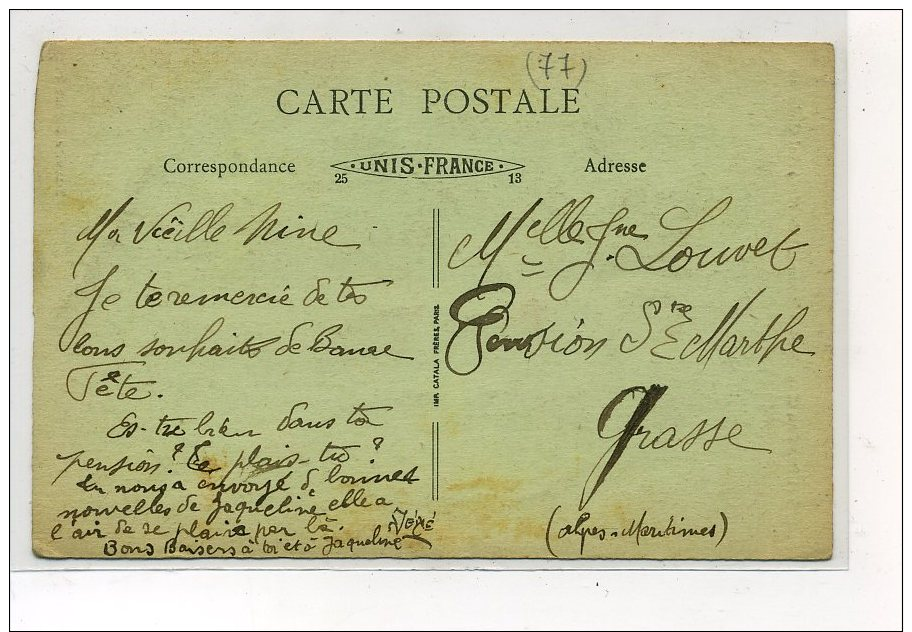 (77)
CARTE POSTALE
Correspondance
UNIS-FRANCE
25 13
Adresse
Ma Vieille Nine
Je te remercie de tes
bons souhaits de Bonne
Fête.
Es-tu bien dans ta
pension? Te plais-tu?
nous a envoyé de bonnes
nouvelles de Jaqueline elle a
l'air de se plaire par là.
Bons Baisers à toi et à Jaqueline
Melle Jne Louvet
Pension Ste Marthe
Grasse
(Alpes-Maritimes)
IMP. CATALA FRÈRES, PARIS